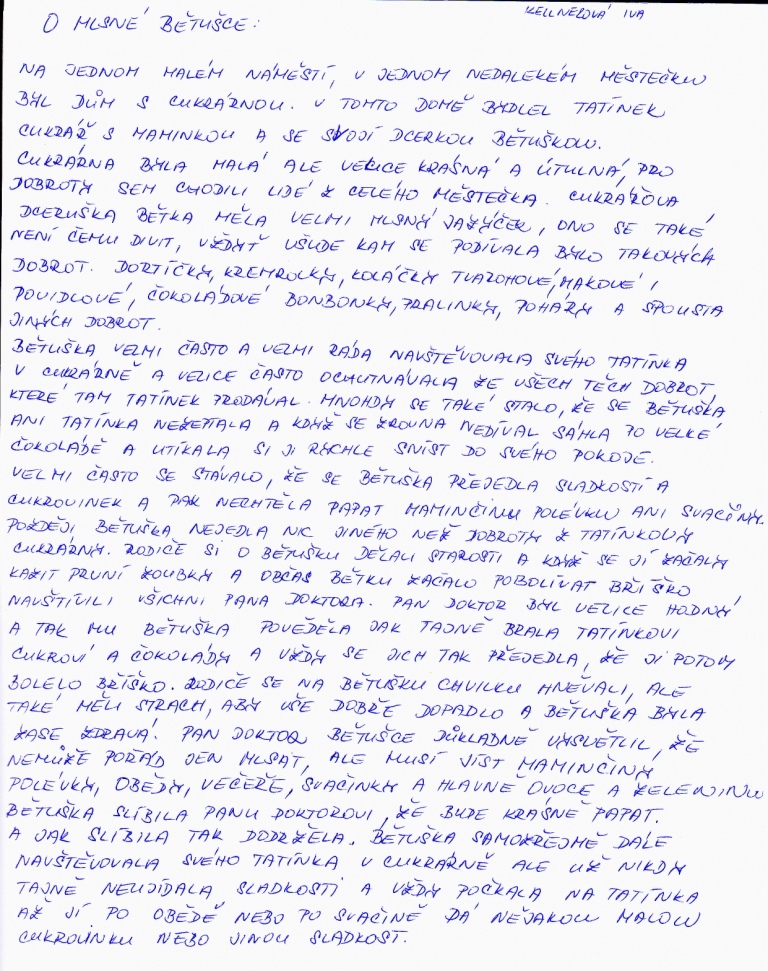 KELLNEROVÁ IVA
O MLSNÉ BĚTUŠCE:
NA JEDNOM MALÉM NÁMĚSTÍ, V JEDNOM NEDALEKÉM MĚSTEČKU
BYL DŮM S CUKRÁRNOU. V TOMTO DOMĚ BYDLEL TATÍNEK
CUKRÁŘ S MAMINKOU A SE SVOJÍ DCERKOU BĚTUŠKOU.
CUKRÁRNA BYLA MALÁ ALE VELICE KRÁSNÁ A ÚTULNÁ, PRO
DOBROTY SEM CHODILI LIDÉ Z CELÉHO MĚSTEČKA. CUKRÁŘOVA
DCERUŠKA BĚTKA MĚLA VELMI MLSNÝ JAZÝČEK, ONO SE TAKÉ
NENÍ ČEMU DIVIT, VŽDYŤ VŠUDE KAM SE PODÍVALA BYLO TAKOVÝCH
DOBROT. DORTÍČKY, KREMROLKY, KOLÁČKY TVAROHOVÉ, MAKOVÉ I
POVIDLOVÉ, ČOKOLÁDOVÉ BONBONKY, PRALINKY, POHÁRY A SPOUSTA
JINÝCH DOBROT.
BĚTUŠKA VELMI ČASTO A VELMI RÁDA NAVŠTĚVOVALA SVÉHO TATÍNKA
V CUKRÁRNĚ A VELICE ČASTO OCHUTNÁVALA ZE VŠECH TĚCH DOBROT,
KTERÉ TAM TATÍNEK PRODÁVAL. MNOHDY SE TAKÉ STALO, ŽE SE BĚTUŠKA
ANI TATÍNKA NEZEPTALA A KDYŽ SE ZROVNA NEDÍVAL SÁHLA PO VELKÉ
ČOKOLÁDĚ A UTÍKALA SI JI RYCHLE SNÍST DO SVÉHO POKOJE.
VELMI ČASTO SE STÁVALO, ŽE SE BĚTUŠKA PŘEJEDLA SLADKOSTÍ A
CUKROVINEK A PAK NECHTĚLA PAPAT MAMINČINU POLÉVKU ANI SVAČINY.
POZDĚJI BĚTUŠKA NEJEDLA NIC JINÉHO NEŽ DOBROTY Z TATÍNKOVY
CUKRÁRNY. RODIČE SI O BĚTUŠKU DĚLALI STAROSTI A KDYŽ SE JÍ ZAČALY
KAZIT PRVNÍ ZOUBKY A OBČAS BĚTKU ZAČALO POBOLÍVAT BŘÍŠKO
NAVŠTÍVILI VŠICHNI PANA DOKTORA. PAN DOKTOR BYL VELICE HODNÝ
A TAK MU BĚTUŠKA POVĚDĚLA JAK TAJNĚ BRALA TATÍNKOVI
CUKROVÍ A ČOKOLÁDY A VŽDY SE JICH TAK PŘEJEDLA, ŽE JI POTOM
BOLELO BŘÍŠKO. RODIČE SE NA BĚTUŠKU CHVILKU HNĚVALI, ALE
TAKÉ MĚLI STRACH, ABY VŠE DOBŘE DOPADLO A BĚTUŠKA BYLA
ZASE ZDRAVÁ. PAN DOKTOR BĚTUŠCE DŮKLADNĚ VYSVĚTLIL, ŽE
NEMŮŽE POŘÁD JEN MLSAT, ALE MUSÍ JÍST MAMINČINY
POLÉVKY, OBĚDY, VEČEŘE, SVAČINKY A HLAVNĚ OVOCE A ZELENINU
BĚTUŠKA SLÍBILA PANU DOKTOROVI, ŽE BUDE KRÁSNĚ PAPAT.
A JAK SLÍBILA TAK DODRŽELA. BĚTUŠKA SAMOZŘEJMĚ DÁLE
NAVŠTĚVOVALA SVÉHO TATÍNKA V CUKRÁRNĚ ALE UŽ NIKDY
TAJNĚ NEUJÍDALA SLADKOSTI A VŽDY POČKALA NA TATÍNKA
AŽ JÍ PO OBĚDĚ NEBO PO SVAČINĚ DÁ NĚJAKOU MALOU
CUKROVINKU NEBO JINOU SLADKOST.